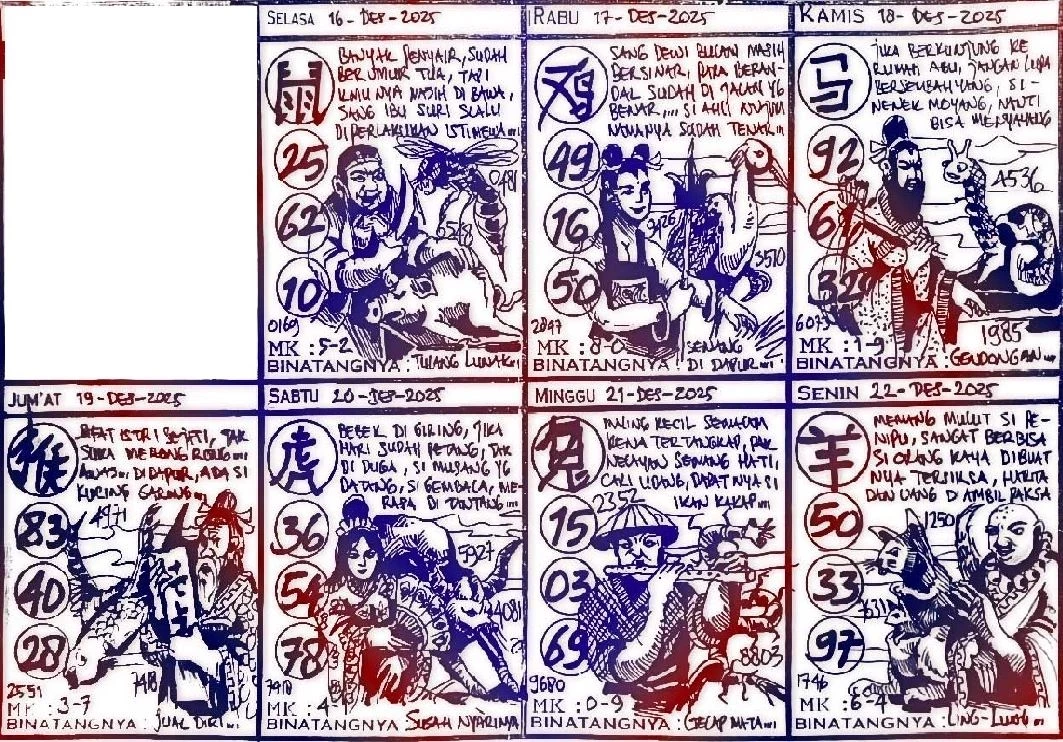 SELASA 16-DES-2025
鼠
BANYAK PENYAIR, SUDAH
BERUMUR TUA, TAPI
ILMU NYA MASIH DI BAWA,
SANG IBU SURI SLALU
DI PERLAKUKAN ISTIMEWA...
25
62
10
0481
6528
0169
MK : 5-2
BINATANGNYA : TULANG LUNAK...
RABU 17-DES-2025
鸡
SANG DEWI BULAN MASIH
BERSINAR, PARA BERAN-
DAL SUDAH DI JALAN YG
BENAR,... SI AHLI NUJUM
NAMANYA SUDAH TENAR...
49
16
50
3426
3510
2897
MK : 8-0
BINATANGNYA : SENANG
DI DAPUR...
KAMIS 18-DES-2025
马
JIKA BERKUNJUNG KE
RUMAH ABU, JANGAN LUPA
BERSEMBAHYANG, SI-
NENEK MOYANG, NANTI
BISA
92
6
32
A536
1985
6073
MK : 1-9
BINATANGNYA : GENDONGAN...
JUM'AT 19-DES-2025
猴
ISTRI SEJATI, TAK
SUKA
AWAS... DI DAPUR, ADA SI
KUCING GARONG...
83
40
28
4971
748
2551
MK : 3-7
BINATANGNYA : JUAL DIRI...
SABTU 20-DES-2025
虎
BEBEK DI GIRING, JIKA
HARI SUDAH PETANG, TAK
DI DUGA, SI MUSANG YG
DATANG, SI GEMBALA, ME-
RASA DI TANTANG...
36
54
78
5927
4081
7918
MK : 4-
BINATANGNYA : SUSAH NYARINYA
MINGGU 21-DES-2025
兔
MALING KECIL SEMALAM
KENA TERTANGKAP, PAK
NELAYAN SENANG HATI,
CARI UDANG, DAPATNYA SI
IKAN KAKAP...
2352
15
03
69
8803
9680
MK : 0-9
BINATANGNYA : GELAP MATA...
SENIN 22-DES-2025
羊
MEMANG MULUT SI PE-
NIPU, SANGAT BERBISA
SI ORANG KAYA DIBUAT
NYA TERSIKSA, HARTA
DAN UANG DI AMBIL PAKSA
50
33
97
1250
6311
1746
MK : 6-4
BINATANGNYA : LING-LUNG...